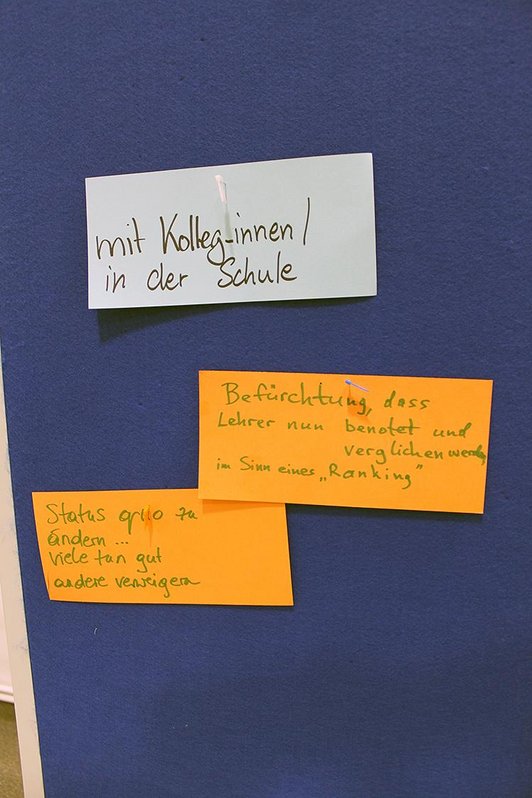 mit Kolleg-innen/
in der Schule
Befürchtung, dass
Lehrer nun benotet und
verglichen werden
im Sinn eines „Ranking"
Status quo zu
ändern...
viele tun gut
andere verweigern